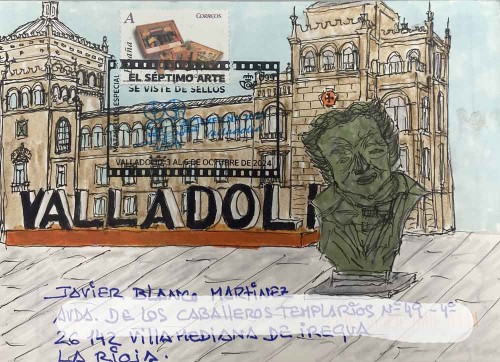 A
CORREOS
España
EL SÉPTIMO ARTE
SE VISTE DE SELLOS
VALLADOLID, 3 AL 6 DE OCTUBRE DE 2024
VALLADOLI
JAVIER BLANCO MARTINEZ
AVDA. DE LOS CABALLEROS TEMPLARIOS Nº 49 - 4º
26142 VILLAMEDIANA DE IREGUA
LA RIOJA.